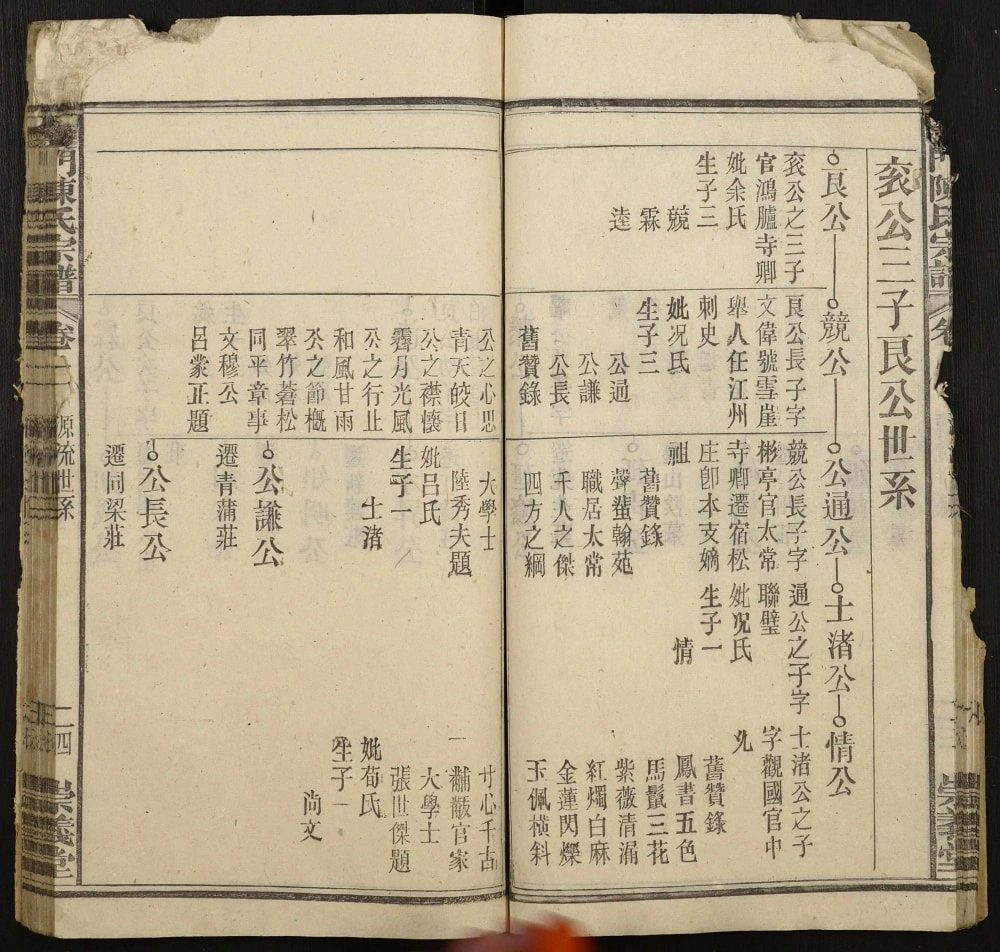 袞公三子艮公世系
艮公
袞公之三子
官鴻臚寺卿
妣余氏
生子三
競
霖
逵
競公
艮公長子字
文偉號雪崖
舉人任江州
刺史
妣況氏
生子三
公通
公謙
公長
舊贊錄
公之心思
青天皎日
公之襟懷
霽月光風
公之行止
和風甘雨
公之節概
翠竹蒼松
同平章事
文穆公
呂蒙正題
公通公
競公長子字
彬亭官太常
寺卿遷宿松
庄卽本支嫡
祖
舊贊錄
聲蜚翰苑
職居太常
千人之傑
四方之綱
大學士
陸秀夫題
妣呂氏
生子一
士渚
公謙公
遷青蒲莊
公長公
遷同梁莊
士渚公
通公之子字
聯璧
妣况氏
生子一
情
情公
士渚公之子
字觀國官中
允
舊贊錄
鳳書五色
馬鬣三花
紫薇清漏
紅燭白麻
金蓮閃爍
玉佩橫斜
寸心千古
一黼黻官家
大學士
張世傑題
妣荀氏
生子一
尚文
門陳氏宗譜
卷
源流世系
二四
崇義堂
陳氏宗譜
卷
崇義堂